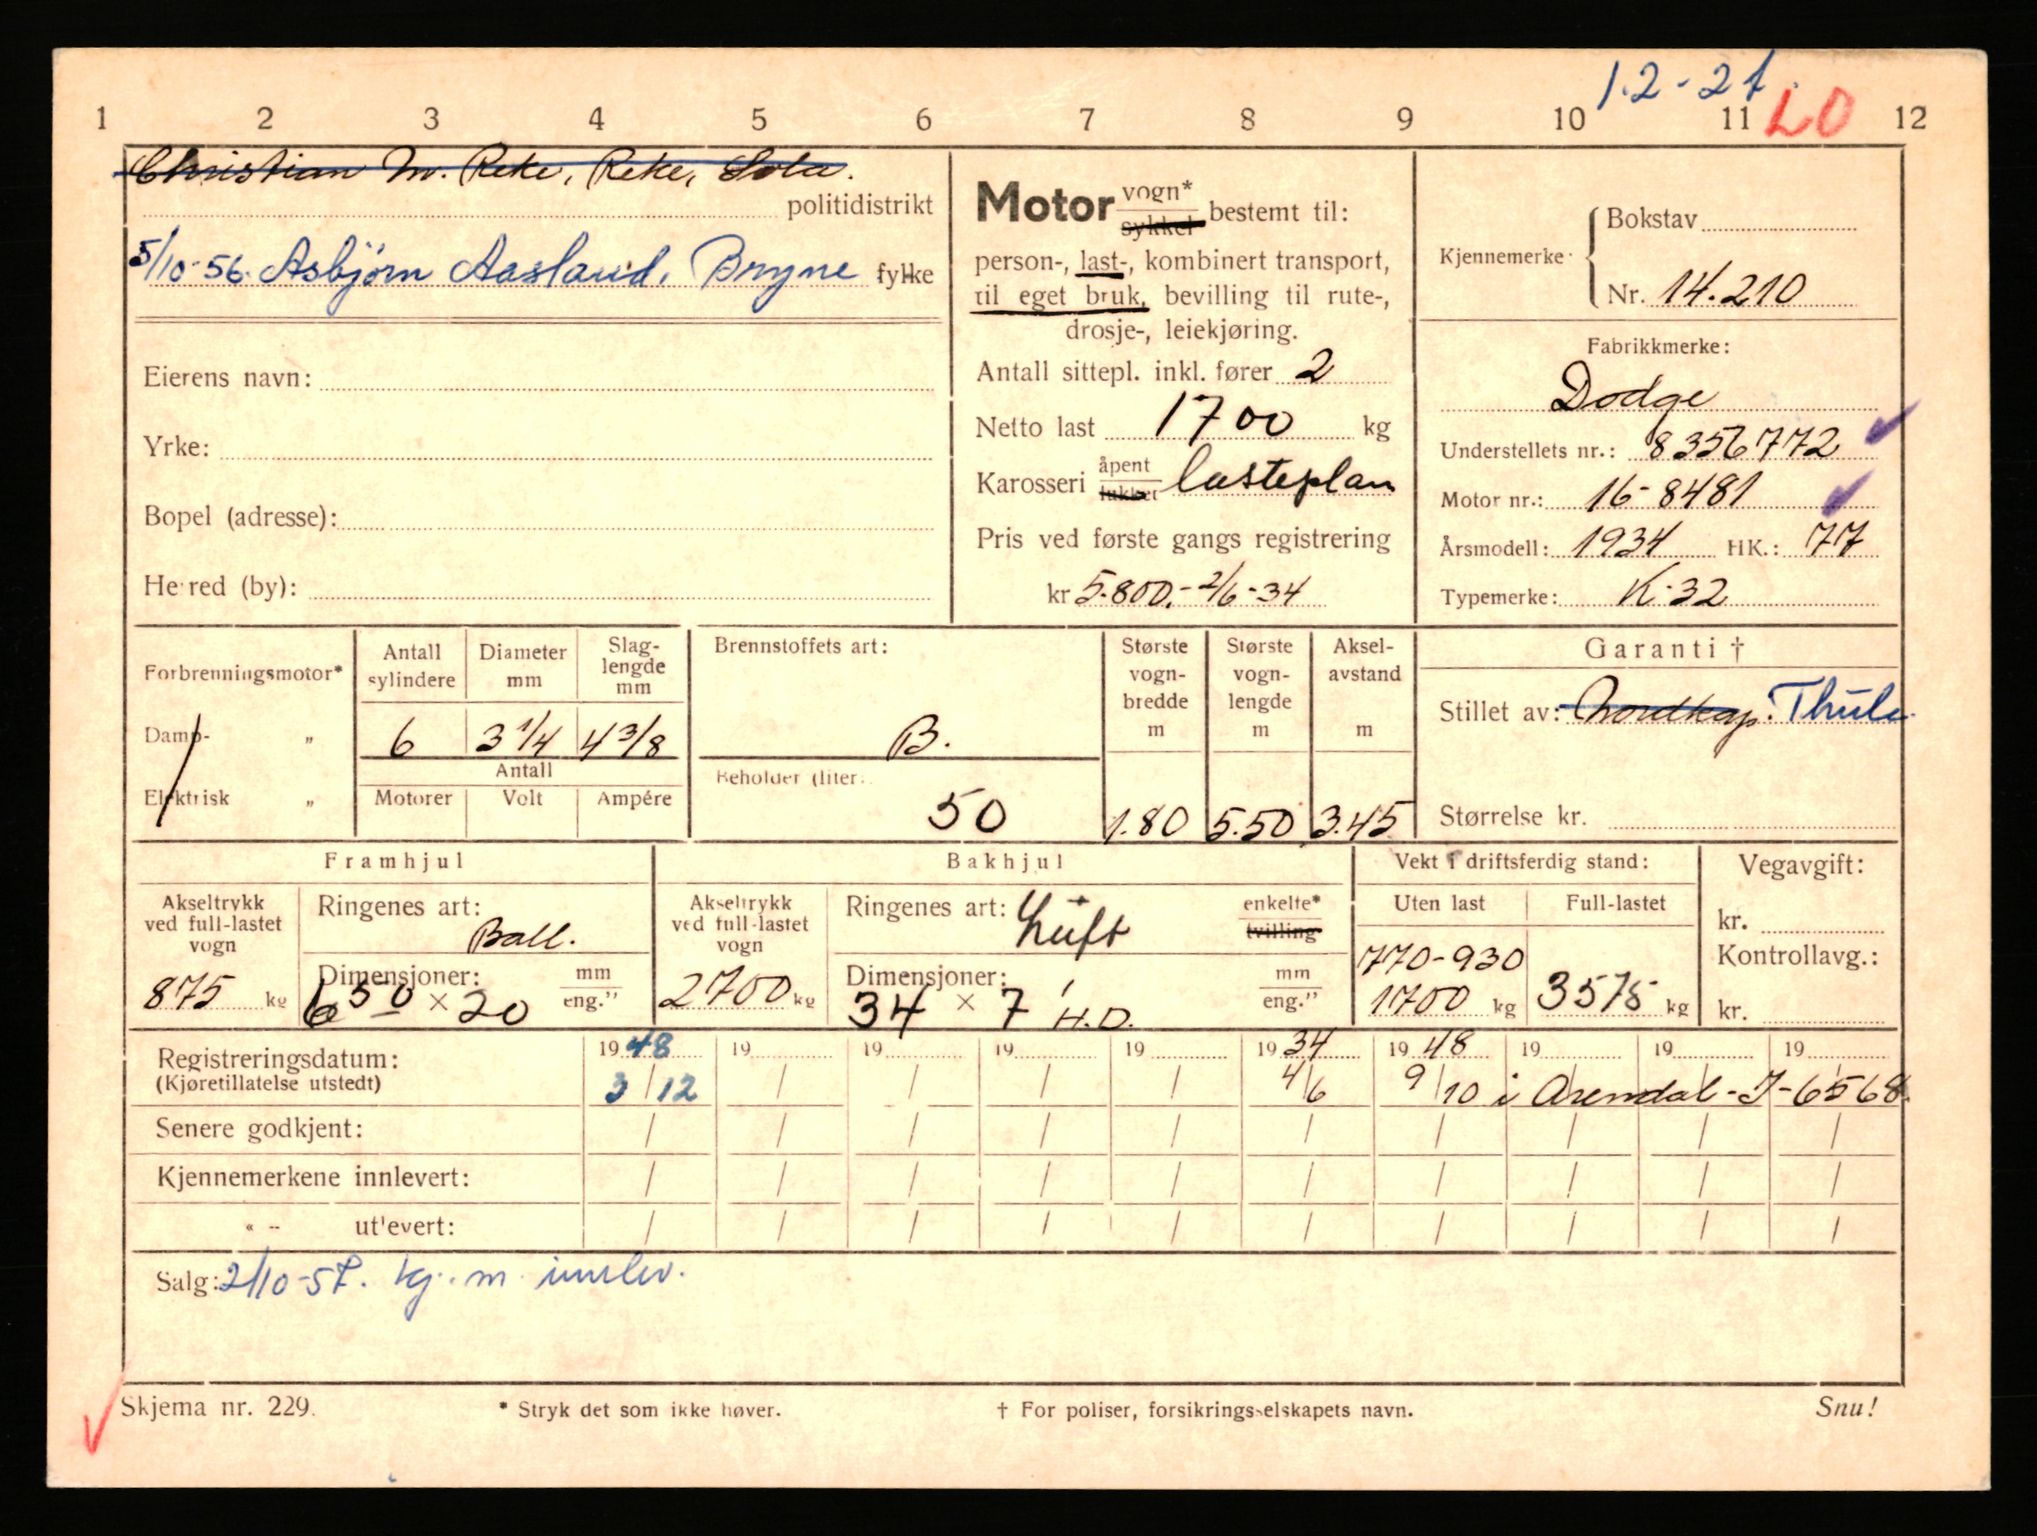 1.2-21
LO
1 2 3 4 5 6 7 8 9 10 11 12
Christian M. Reke, Reke, Sola.
politidistrikt
5/10-56. Asbjørn Aasland, Bryne fylke
Eierens navn:
Yrke:
Bopel (adresse):
Herred (by):
Motor vogn* sykkel bestemt til:
person-, last-, kombinert transport,
til eget bruk, bevilling til rute-,
drosje-, leiekjøring.
Antall sittepl. inkl. fører 2
Netto last 1700 kg
Karosseri åpent lukket lasteplan
Pris ved første gangs registrering
kr 5.800.- 2/6-34
Kjennemerke
Bokstav
Nr. 14.210
Fabrikkmerke:
Dodge
Understellets nr.: 8356772
Motor nr.: 16-8481
Årsmodell: 1934 HK.: 77
Typemerke: K-32
Forbrenningsmotor*
Damp- „
Elektrisk „
Antall sylindere Diameter mm Slag-lengde mm
6 3 1/4 4 3/8
Antall
Motorer Volt Ampére
Brennstoffets art:
B.
Beholder (liter:
50
Største vogn-bredde m
1.80
Største vogn-lengde m
5.50
Aksel-avstand m
3.45
Garanti †
Stillet av: Nordkap. Thule
Størrelse kr.
Framhjul
Akseltrykk ved full-lastet vogn
875 kg
Ringenes art:
Ball.
Dimensjoner: mm eng."
6 50 × 20
Bakhjul
Akseltrykk ved full-lastet vogn
2700 kg
Ringenes art: Luft enkelte* tvilling
Dimensjoner: mm eng."
34 × 7 H.D.
Vekt i driftsferdig stand:
Uten last Full-lastet
770-930
1700 kg 3575 kg
Vegavgift:
kr.
Kontrollavg.:
kr.
Registreringsdatum: 1948 19 19 19 19 1934 1948 19 19 19
(Kjøretillatelse utstedt) 3/12 / / / / 4/6 9/10 i Arendal-I-6568.
Senere godkjent: / / / / / / / / / /
Kjennemerkene innlevert: / / / / / / / / / /
« - utlevert: / / / / / / / / / /
Salg: 2/10-57. kj.m. innlev.
Skjema nr. 229. * Stryk det som ikke høver. † For poliser, forsikringsselskapets navn. Snu!